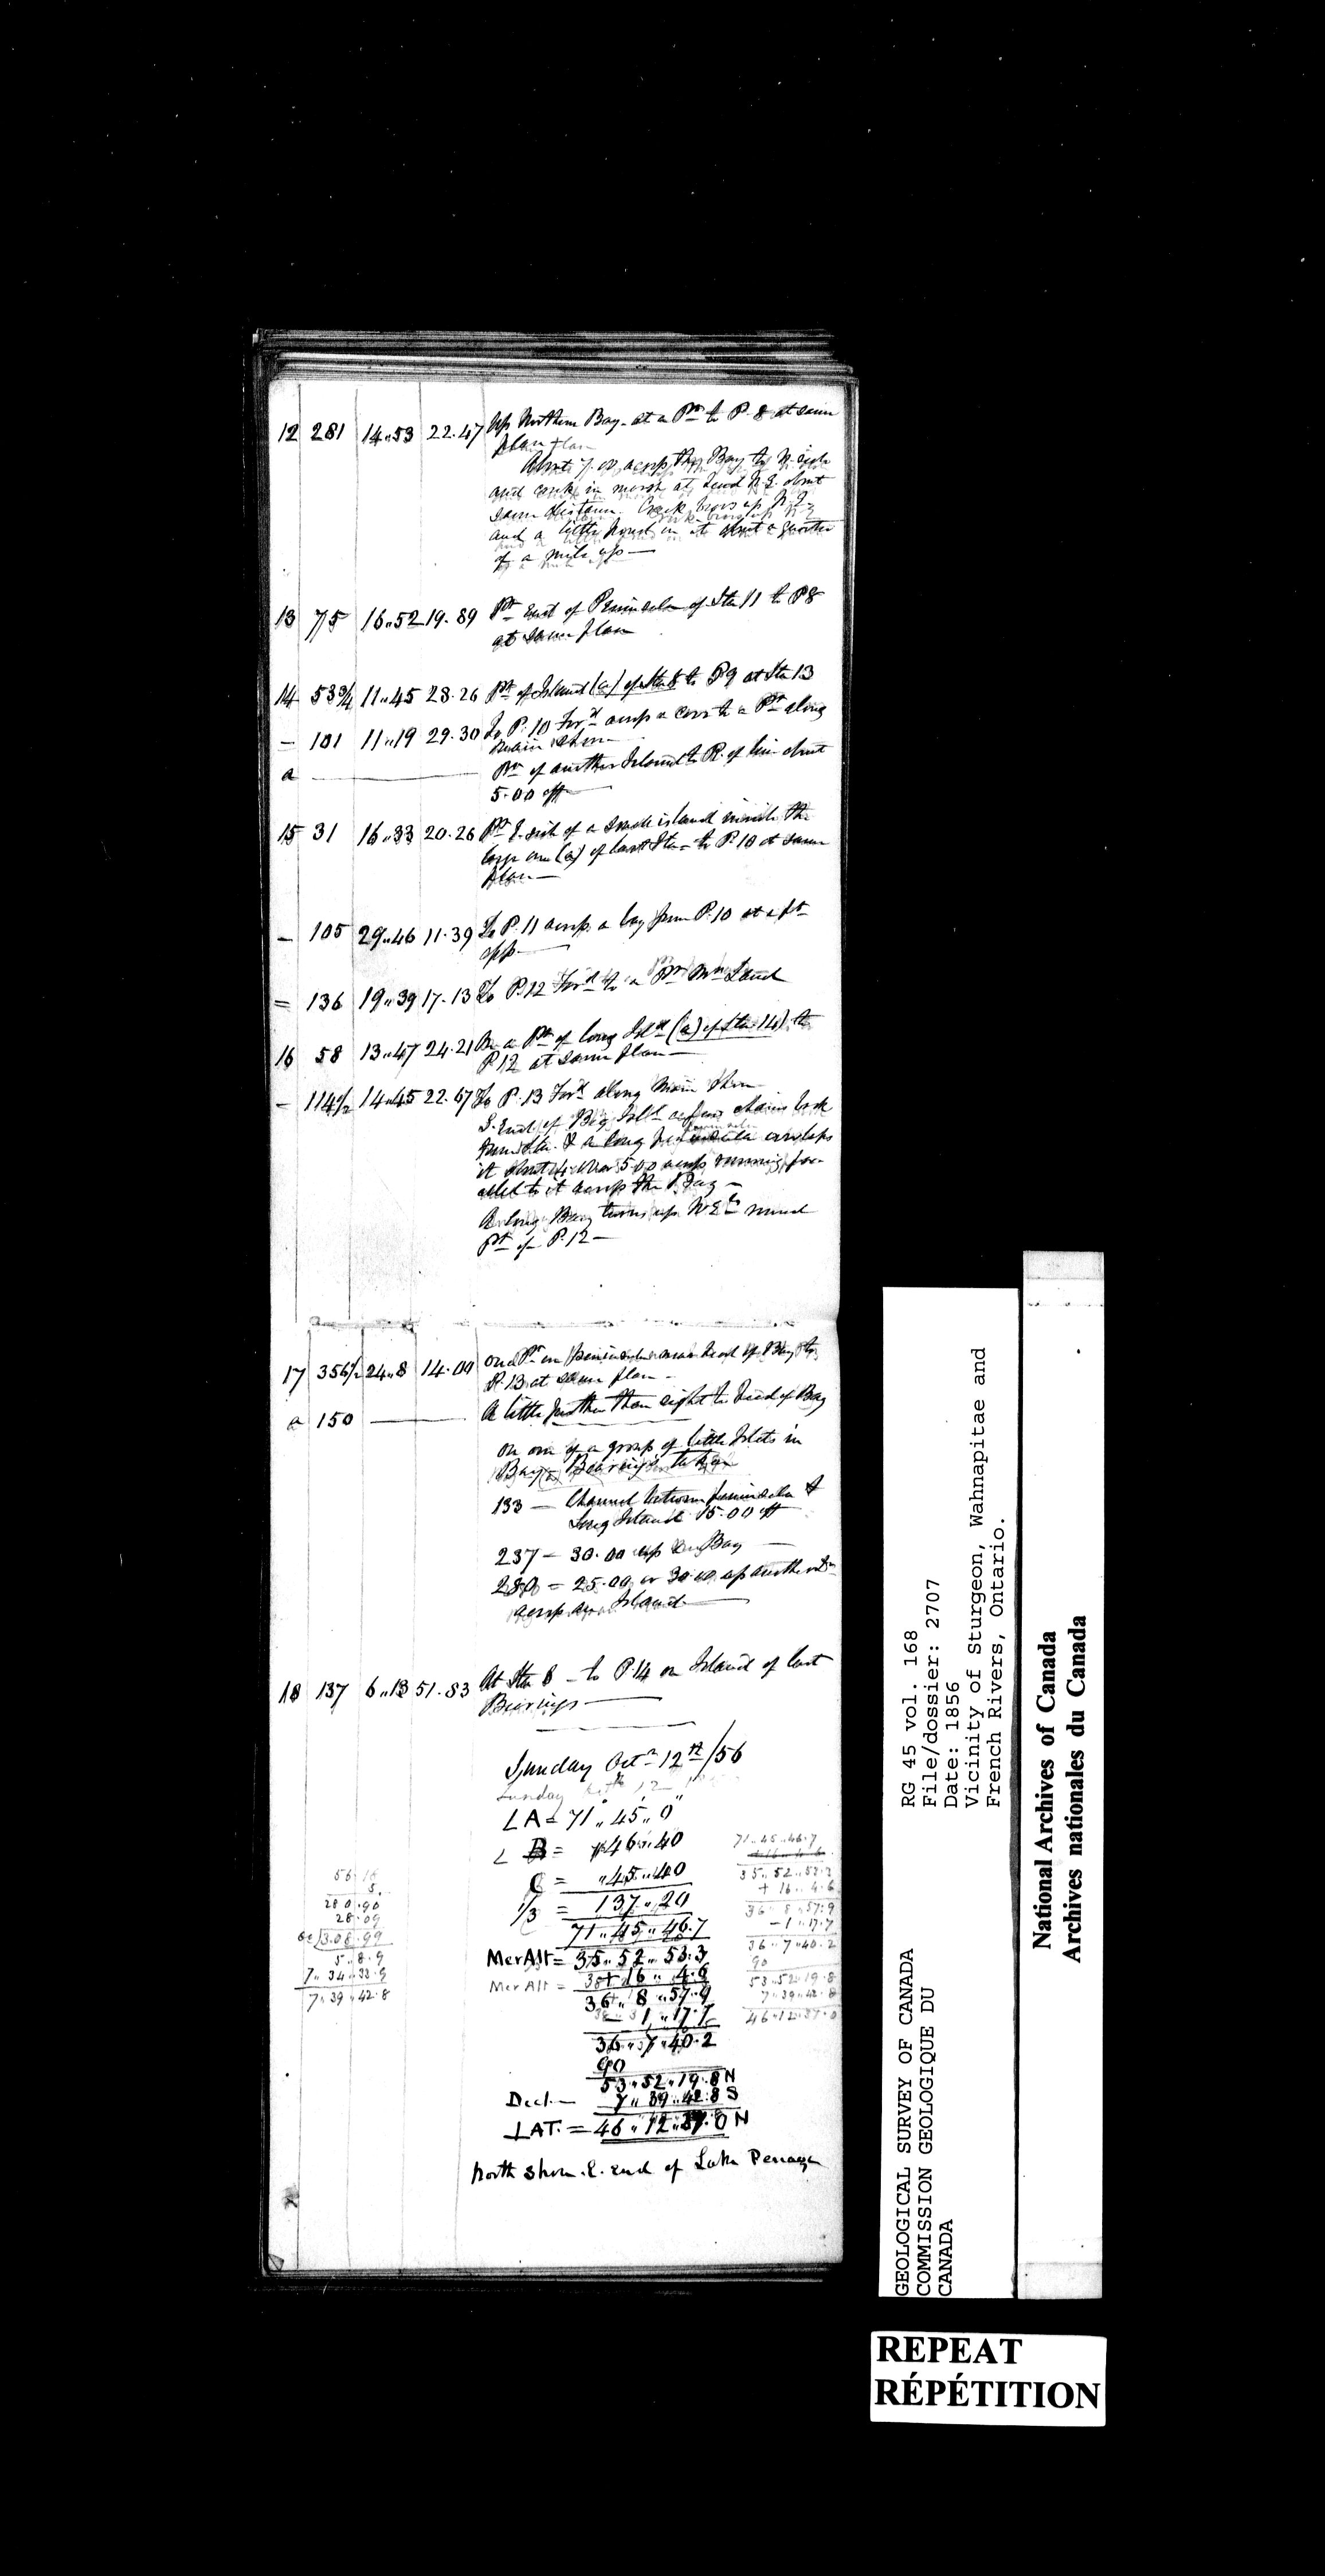 12 281 14"53 22.47 Up Northern Bay - at a Pt to P. 8 at same
plan
About 7.00 across this Bay to N. side
and creek in marsh at head N.E. about
same distance. Creek bears up N.E.
and a little pond in it about a quarter
of a mile up —
13 75 16"52 19.89 Pt East of Peninsula of Sta 11 to P8
at same plan
14 53¾ 11"45 28.26 Pt of Island (a) of Sta 8 to P9 at Sta 13
— 101 11"19 29.30 To P. 10 Ford across a cove to a Pt along
main shore
a Pt of another Island to R. of line about
5.00 off
15 31 16"33 20.26 Pt E. side of a small island inside the
large one (a) of last Sta - to P. 10 at same
plan —
— 105 29"46 11.39 To P. 11 across a bay from P. 10 at a pt
opp —
= 136 19"39 17.13 To P. 12 Ford to a Pt Mn Land
16 58 13"47 24.21 On a Pt of long Isld (a) of Sta 14) to
P 12 at same plan —
— 114½ 14"45 22.67 To P. 13 Ford along Main Shore
S. End of Big Isld a few chains back
from Sta. & a long peninsula overlaps
it about 4.00 or 5.00 across running par-
allel to it across the Bay —
A long Bay turns up N E round
Pt of P. 12 —
17 356½ 24"8 14.00 On a Pt on peninsula near head of Bay to
P. 13 at same plan —
a 150 — A little further than sight to head of Bay
On one of a group of little Islets in
Bay Bearings taken
133 — Channel between peninsula &
Long Island 15.00 off
237 — 30.00 up Bay —
280 = 25.00 or 30.00 up another
across an Island —
18 137 6"13 51.83 At Sta 8 — to P. 14 on Island of last
Bearings —
Sunday Octr 12th/56
LA = 71"45"0
L B = "46"40
C = "45"40
1/3 = 137"20
71"45"46.7
Mer Alt = 35"52"53.3
+ 16"4.6
36"8"57.9
— 1"17.7
36"7"40.2
90
53"52"19.8 N
Decl. — 7"39"42.8 S
LAT. = 46"12"37.0 N
North Shore E. end of Lake Penage
56.18
5.
280.90
28.09
60)308.99
5"8.9
7"34"33.9
7"39"42.8
71"45"46.7
35"52"53.3
+ 16"4.6
36"8"57.9
— 1"17.7
36"7"40.2
90
53"52"19.8
7"39"42.8
46"12"37.0
RG 45 vol. 168
File/dossier: 2707
Date: 1856
Vicinity of Sturgeon, Wahnapitae and
French Rivers, Ontario.
GEOLOGICAL SURVEY OF CANADA
COMMISSION GEOLOGIQUE DU
CANADA
National Archives of Canada
Archives nationales du Canada
REPEAT
RÉPÉTITION